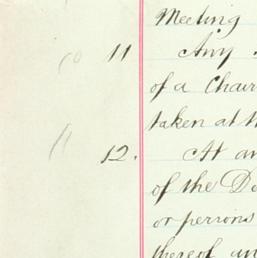 Meeting
10 11 Any
of a Chair
taken at th
11 12. At an
of the Do
or persons
thereof an